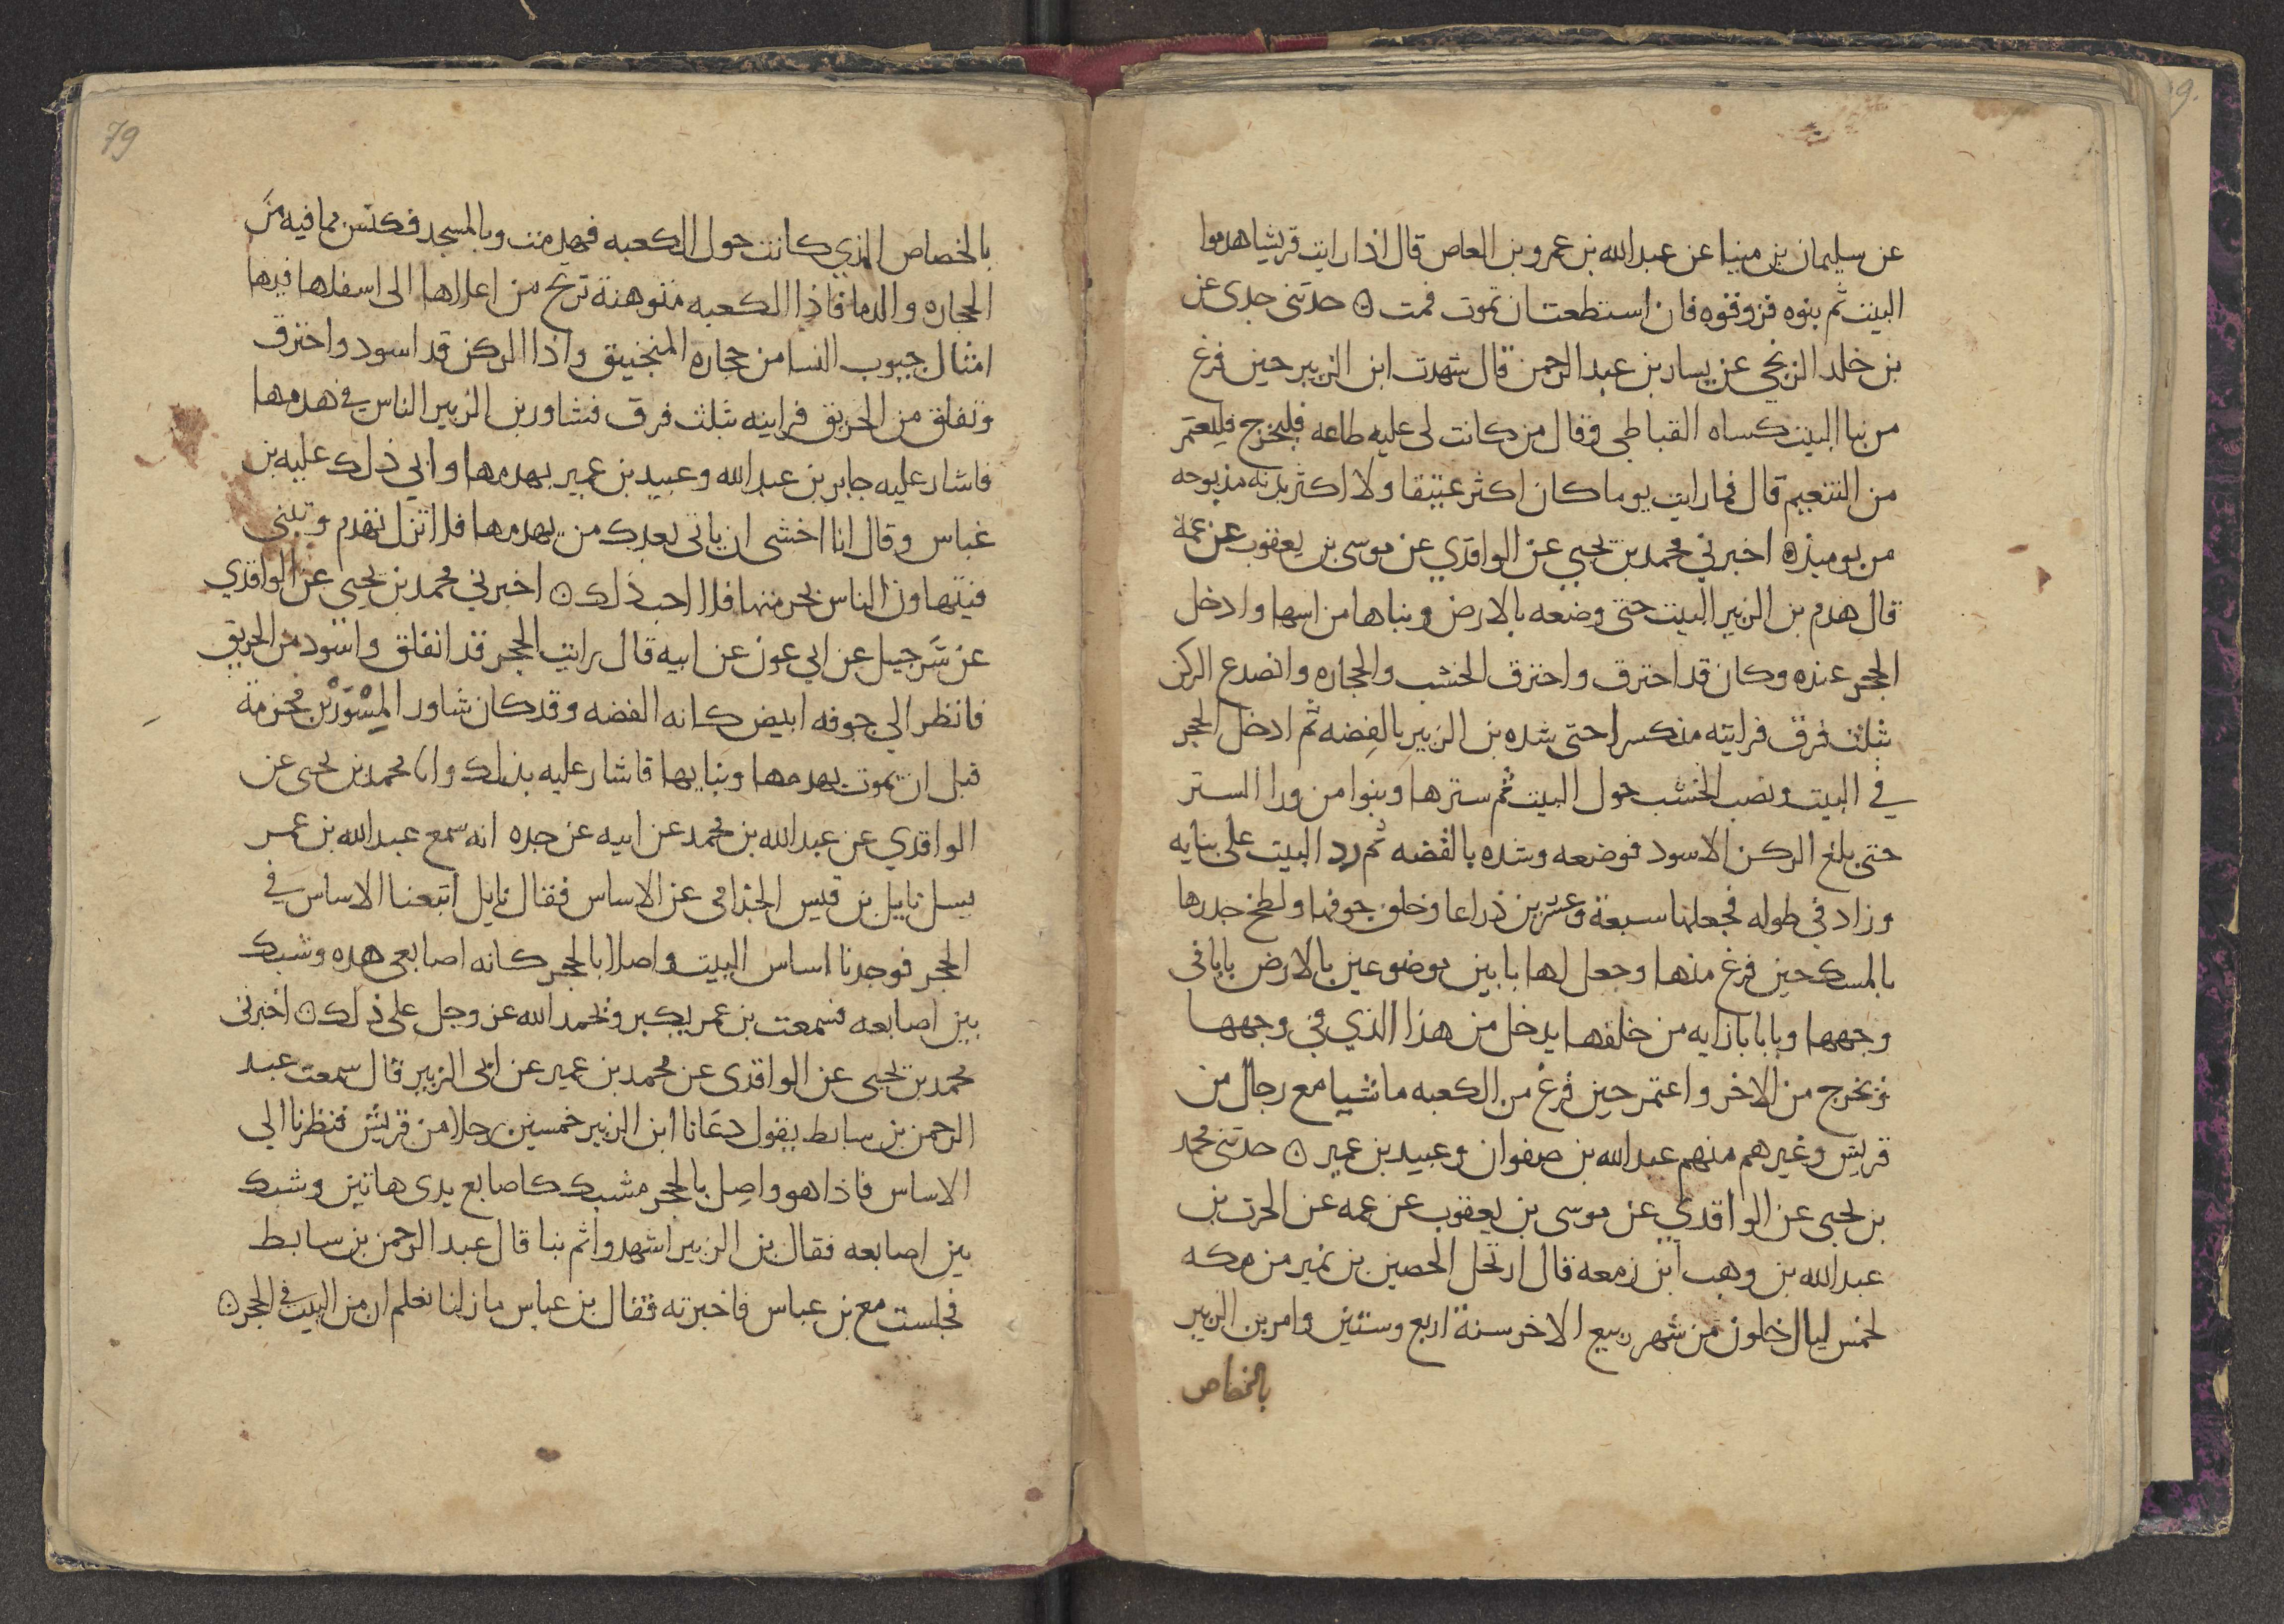 عن سليمان بن مينا عن عبد الله بن عمرو بن العاص قال اذا رايت قريشا هدموا
البيت ثم بنوه فزوقوه فان استطعت ان تموت فمت ۞ حدثني جدى عن
بن خلد الزنجي عن يسار بن عبد الرحمن قال شهدت ابن الزبير حين فرغ
من بنا البيت كساه القباطي وقال من كانت لى عليه طاعه فليخرج فليعتمر
من التنعيم قال فما رايت يوما كان اكثر عتيقا ولا اكثر بدنه مذبوحه
من يوميذ ۞ اخبرني محمد بن يحيي عن الواقدي عن موسى بن يعقوب عن عمه
قال هدم بن الزبير البيت حتى وضعه بالارض وبناها من اسها وادخل
الحجر عنده وكان قد احترق واحترق الخشب والحجاره وانصدع الركن
بثلث فرق فرايته منكسرا حتى شده بن الزبير بالفضه ثم ادخل الحجر
في البيت ونصب الخشب حول البيت ثم سترها وبنوا من ورا الستر
حتى بلغ الركن الاسود فوضعه وشده بالفضه ثم رد البيت على بنايه
وزاد في طوله فجعلها سبعة وعشرين ذراعا وخلق جوفها ولطخ جدرها
بالمسك حين فرغ منها وجعل لها بابين موضوعين بالارض بابا في
وجهها وبابا بازايه من خلفها يدخل من هذا الذي في وجهها
ويخرج من الاخر واعتمر حين فرغ من الكعبه ماشيا مع رجال من
قريش وغيرهم منهم عبد الله بن صفوان وعبيد بن عمير ۞ حدثني محمد
بن يحيى عن الواقدي عن موسى بن يعقوب عن عمه عن الحرث بن
عبد الله بن وهب ابن زمعه قال ارتحل الحصين بن نمير من مكه
لخمس ليال خلون من شهر ربيع الاخر سنة اربع وستين وامر بن الزبير
بالخصاص
79
بالخصاص الذي كانت حول الكعبه فهدمت وبالمسجد فكنس مما فيه من
الحجاره والدما فاذا الكعبه متوهنة ترتج من اعلاها الى اسفلها فيها
امثال جيوب النسا من حجاره المنجنيق واذا الركن قد اسود واحترق
وتفلق من الحريق فرايته بثلث فرق فشاور بن الزبير الناس في هدمها
فاشار عليه جابر بن عبد الله وعبيد بن عمير بهدمها وابي ذلك عليه بن
عباس وقال انا اخشى ان ياتى بعدك من يهدمها فلا تزل تهدم وتبنى
فيتهاون الناس بحرمتها فلا احب ذلك ۞ اخبرني محمد بن يحيى عن الواقدي
عن شرحبيل عن ابي عون عن ابيه قال رايت الحجر قد انفلق واسود من الحريق
فانظر الي جوفه ابيض كانه الفضه وقد كان شاور المسْوَر بن مخرمة
قبل ان يموت بهدمها وبنايها فاشار عليه بذلك وانا محمد بن يحيى عن
الواقدي عن عبد الله بن محمد عن ابيه عن جده انه سمع عبد الله بن عمر
يسل نايل بن قيس الجذامى عن الاساس فقال نايل اتبعنا الاساس في
الحجر فوجدنا اساس البيت واصلا بالحجر كانه اصابعى هذه وشبك
بين اصابعه فسمعت بن عمر يكبر ويحمد الله عز وجل على ذلك ۞ اخبرنى
محمد بن يحيى عن الواقدى عن محمد بن عمير عن ابى الزبير قال سمعت عبد
الرحمن بن سابط يقول دعانا ابن الزبير خمسين رجلا من قريش فنظرنا الي
الاساس فاذا هو واصل بالحجر مشبك كاصابع يدى هاتين وشبك
بين اصابعه فقال بن الزبير اشهدوا ثم بنا قال عبد الرحمن بن سابط
فجلست مع بن عباس فاخبرته فقال بن عباس ما زلنا نعلم ان من البيت في الحجر ۞